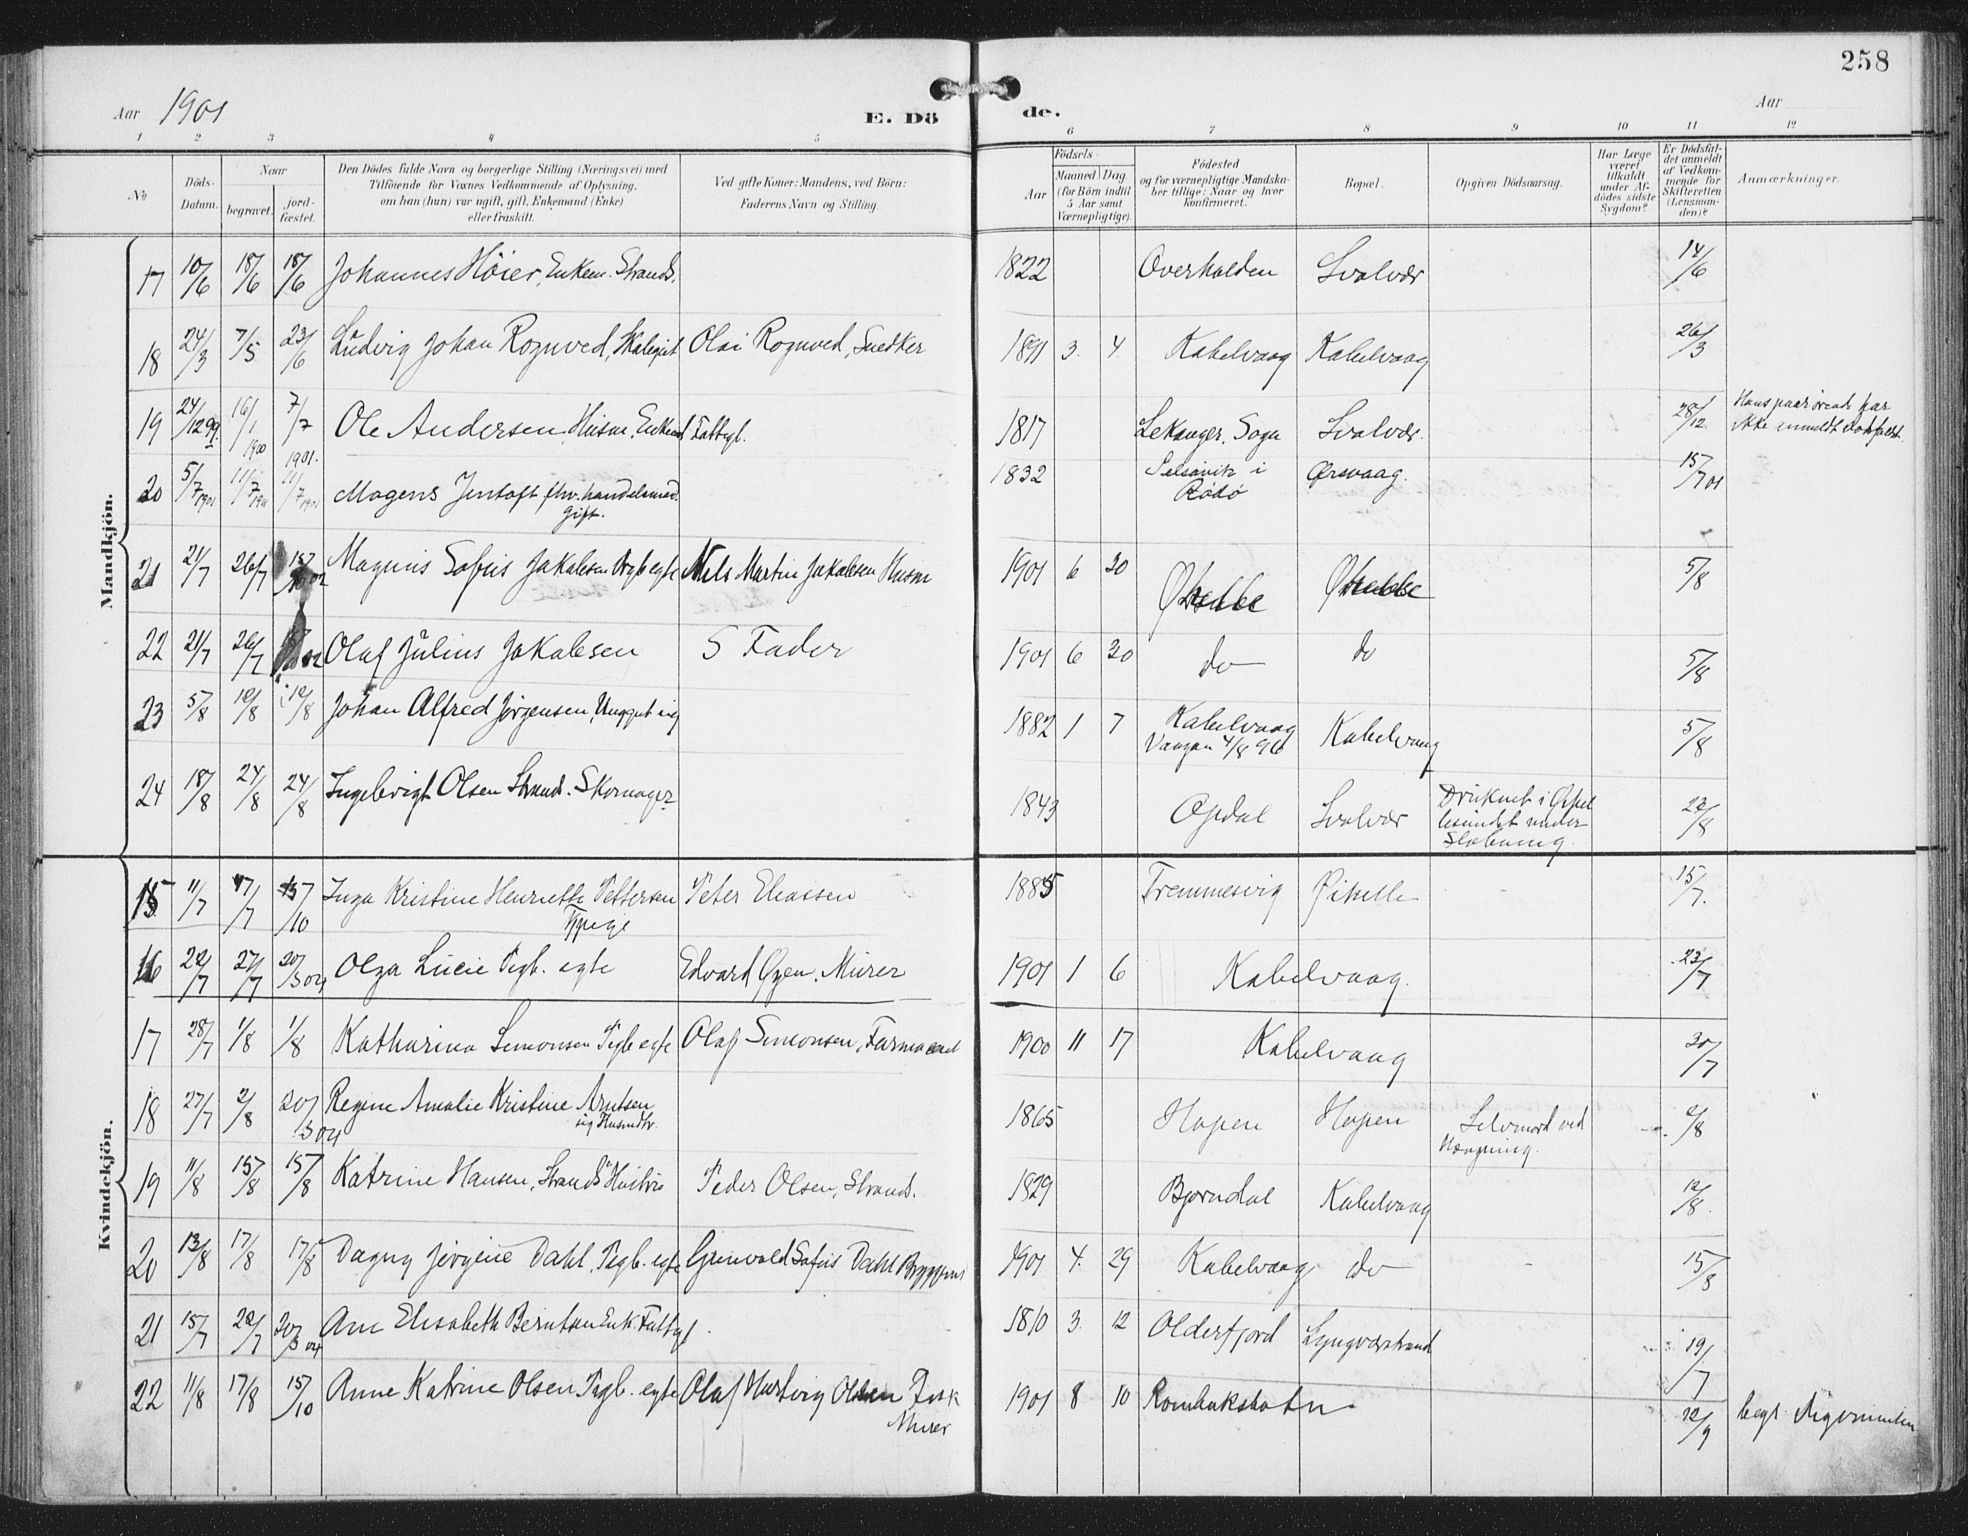 258
Aar 1901
E. Dö
de.
Aar
1 2 3 4 5 6 7 8 9 10 11 12
No
Döds-
Datum.
Naar
begravet.
jord-
fæstet.
Den Dödes fulde Navn og borgerlige Stilling (Næringsvei) med
Tilföiende for Voxnes Vedkommende af Oplysning,
om han (hun) var ugift, gift, Enkemand (Enke)
eller fraskilt.
Ved gifte Koner: Mandens, ved Börn:
Faderens Navn og Stilling.
Födsels-
Aar
Maaned Dag
(for Börn indtil
5 Aar samt
Værnepligtige).
Födested
og for værnepligtige Mandska-
ber tillige: Naar og hvor
konfirmeret.
Bopæl.
Opgiven Dödsaarsag.
Har Læge
været
tilkaldt
under Af-
dödes sidste
Sygdom?
Er Dödsfal-
det anmeldt
af Vedkom-
mende for
Skifteretten
(Lensman-
den)?
Anmærkninger.
Mandkjön.
17 10/6 18/6 18/6 Johannes Höier, Enkem. Strands. 1822 Overhalden Svolvær 14/6
18 24/3 7/5 23/6 Ludvig Johan Rognved, Skolegut Olai Rognved, Snedker 1891 3. 4. Kabelvaag Kabelvaag 26/3
19 24/12 99. 16/1 1900 7/7 1901. Ole Andersen, Husm. Enkem. Fattigl. 1817 Lekanger, Sogn Svolvær. 28/12. Hans paarörende har
ikke anmeldt dödsfaldet.
20 5/7 1901 11/7 1901 11/7 1901 Mogens Jentoft fhv. handelsmd.
Gift. 1832 Selsövik i
Rödö Ørsvaag. 15/7 01
21 21/7 26/7 Magnus Sofus Jakobsen Drgb egte Nils Martin Jakobsen Husm 1901 6 20 5/8
22 21/7 26/7 Olaf Julius Jakobsen S Fader 1901 6 20 do do 5/8
23 5/8 10/8 10/8 Johan Alfred Jörgensen, Unggut ug 1882 1 7 Kabelvaag
Vaagan 4/8 96 Kabelvaag 5/8
24 18/8 24/8 24/8 Ingebrigt Olsen Strand. Skomager 1843 Opdal Svolvær Druknet i
under 22/8
Kvindekjön.
15 11/7 17/7 15/10 Inga Kristine Henriette Pettersen
Tjpige Peter Eliassen 1885 Fremmesvig 15/7.
16 22/7 27/7 20/5 04 Olga Lucie Pigb. egte Edvard Ogen, Murer 1901 1 6 Kabelvaag. 23/7
17 28/7 1/8 1/8 Katharina Simonsen Pigb egte Olaf Simonsen, Farmand 1900 11 17 Kabelvaag 30/7
18 27/7 2/8 20/5 04 Regine Amalie Kristine Arntsen
ug Husmdtr. 1865 Hopen Hopen Selvmord ved
Hængning. 2/8
19 11/8 15/8 15/8 Katrine Hansen, Strands Hustru Peder Olsen, Strands. 1829 Bjerndal Kabelvaag 12/8.
20 13/8 17/8 17/8 Dagny Jörgine Dahl, Pigb. egte Grunvold Sofus Dahl 1901 4. 29 Kabelvaag do 15/8
21 15/7 22/7 20/5 04 Ane Elisabeth Berntsen Enk. Fattigl. 1810 3. 12 Olderfjord Lyngværstrand 19/7
22 11/8 17/8 15/10 Anne Katrine Olsen Pigb. egte Olaf Hartvig Olsen Fisk
Murer 1901 8 10 Rombaksbotn 12/9 begr.